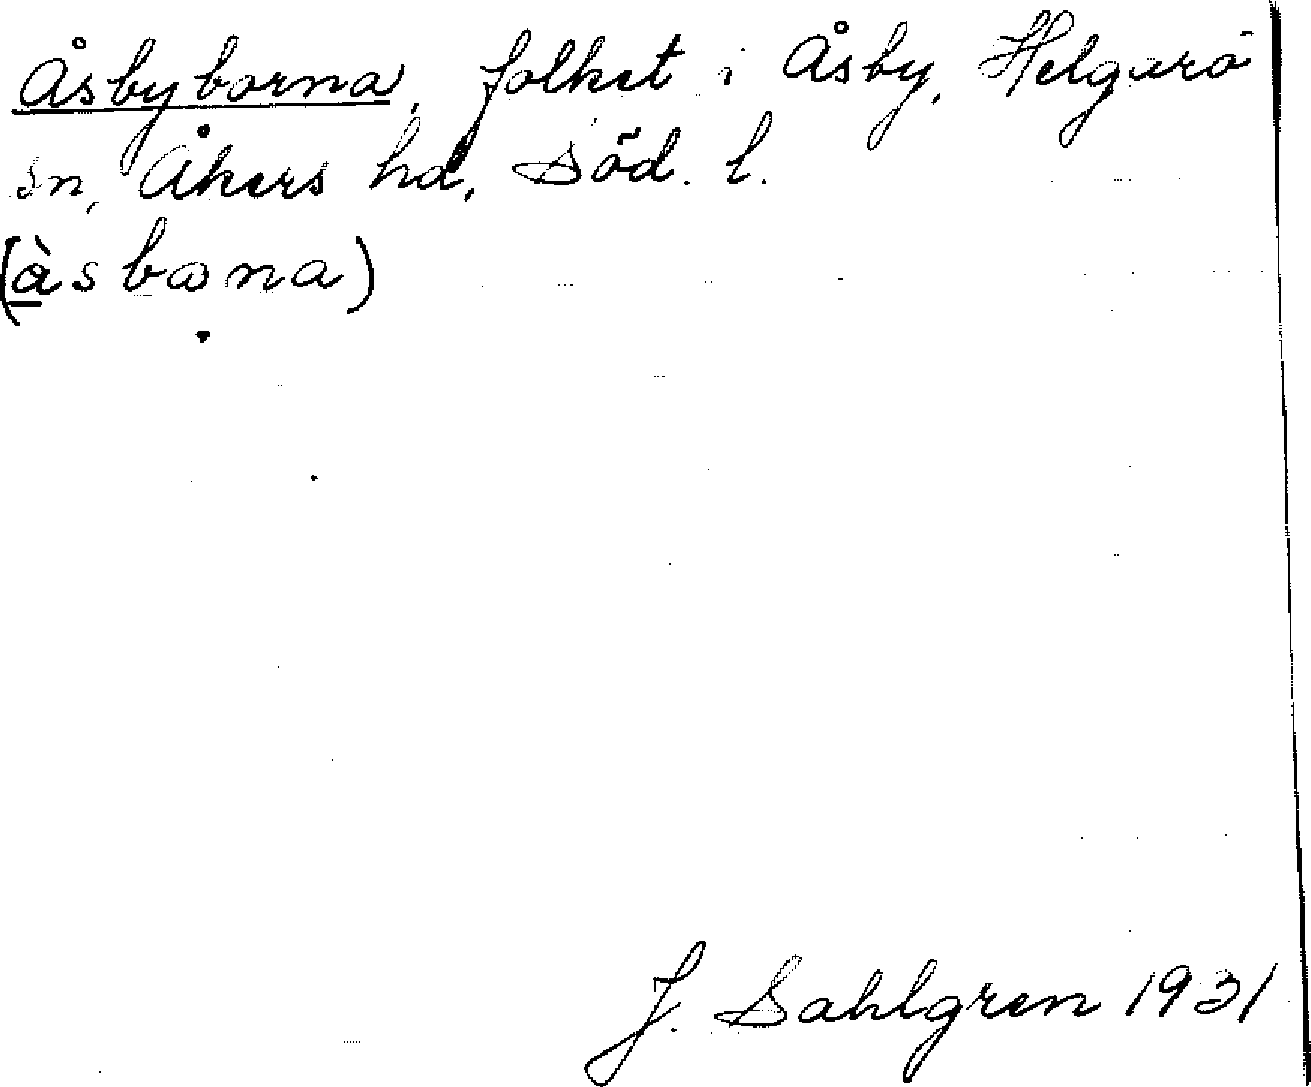 Åsbyborna, folket i Åsby, Helgarö
sn, Åkers hd, Söd. l.
(àsbωna)
J. Sahlgren 1931